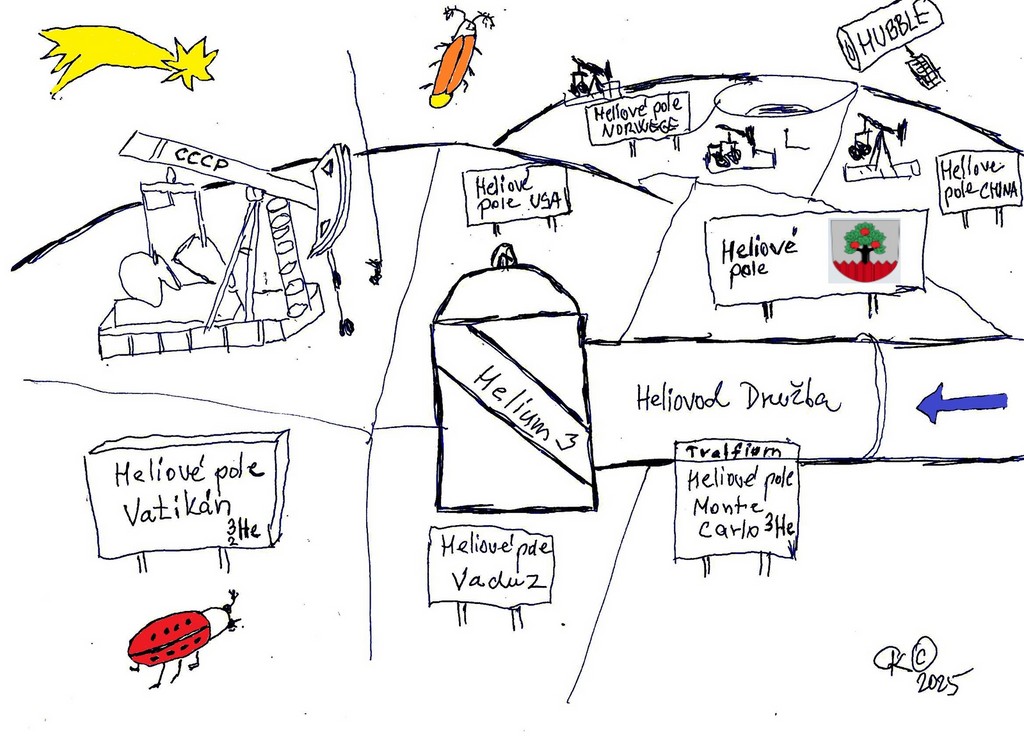 HUBBLE
Heliové pole
NORWEGE
CCCP
Heliové
pole USA
Heliove
pole CHINA
Heliové
pole
Helium 3
Heliovod Družba
Tralfium
Heliové pole
Monte
Carlo 3He
Heliové pole
Vatikán
3
2 He
Heliové pole
Vaduz
K ©
2025